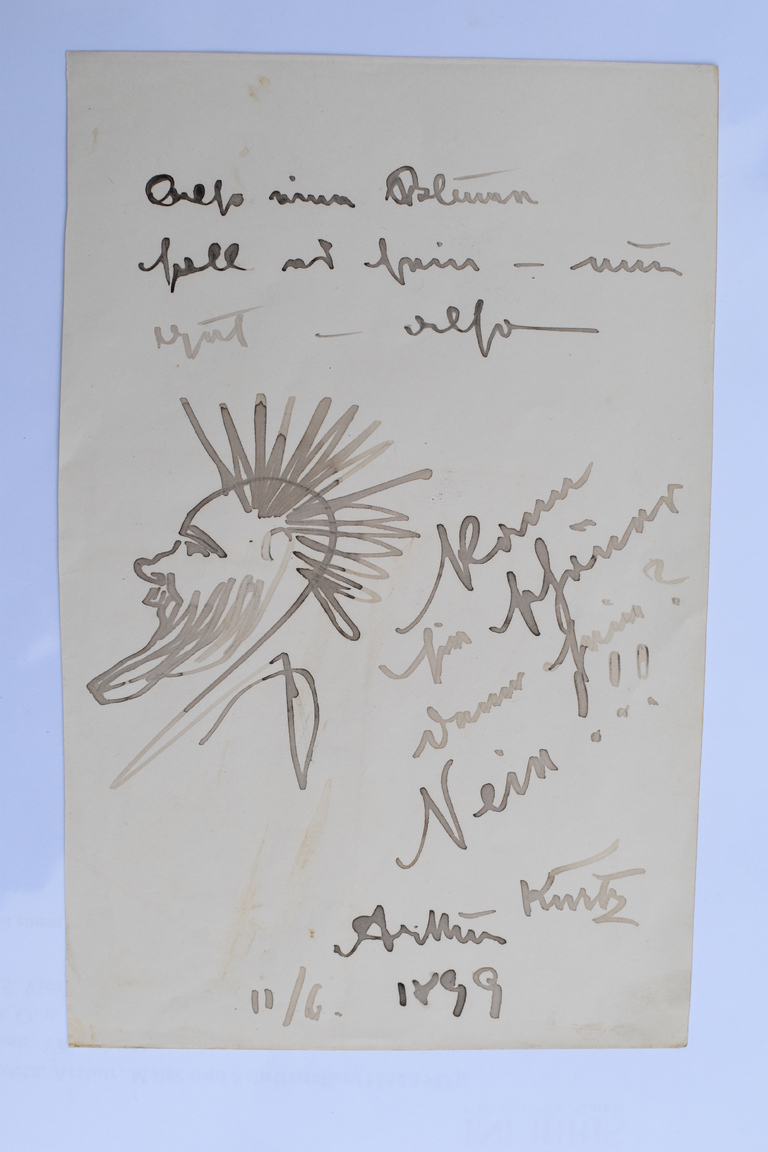 Also eine Blume
soll es sein – nun
gut – also —
Kann
sie schöner
denn sein?
Nein!!!
Arthur Kurtz
11/6. 1899